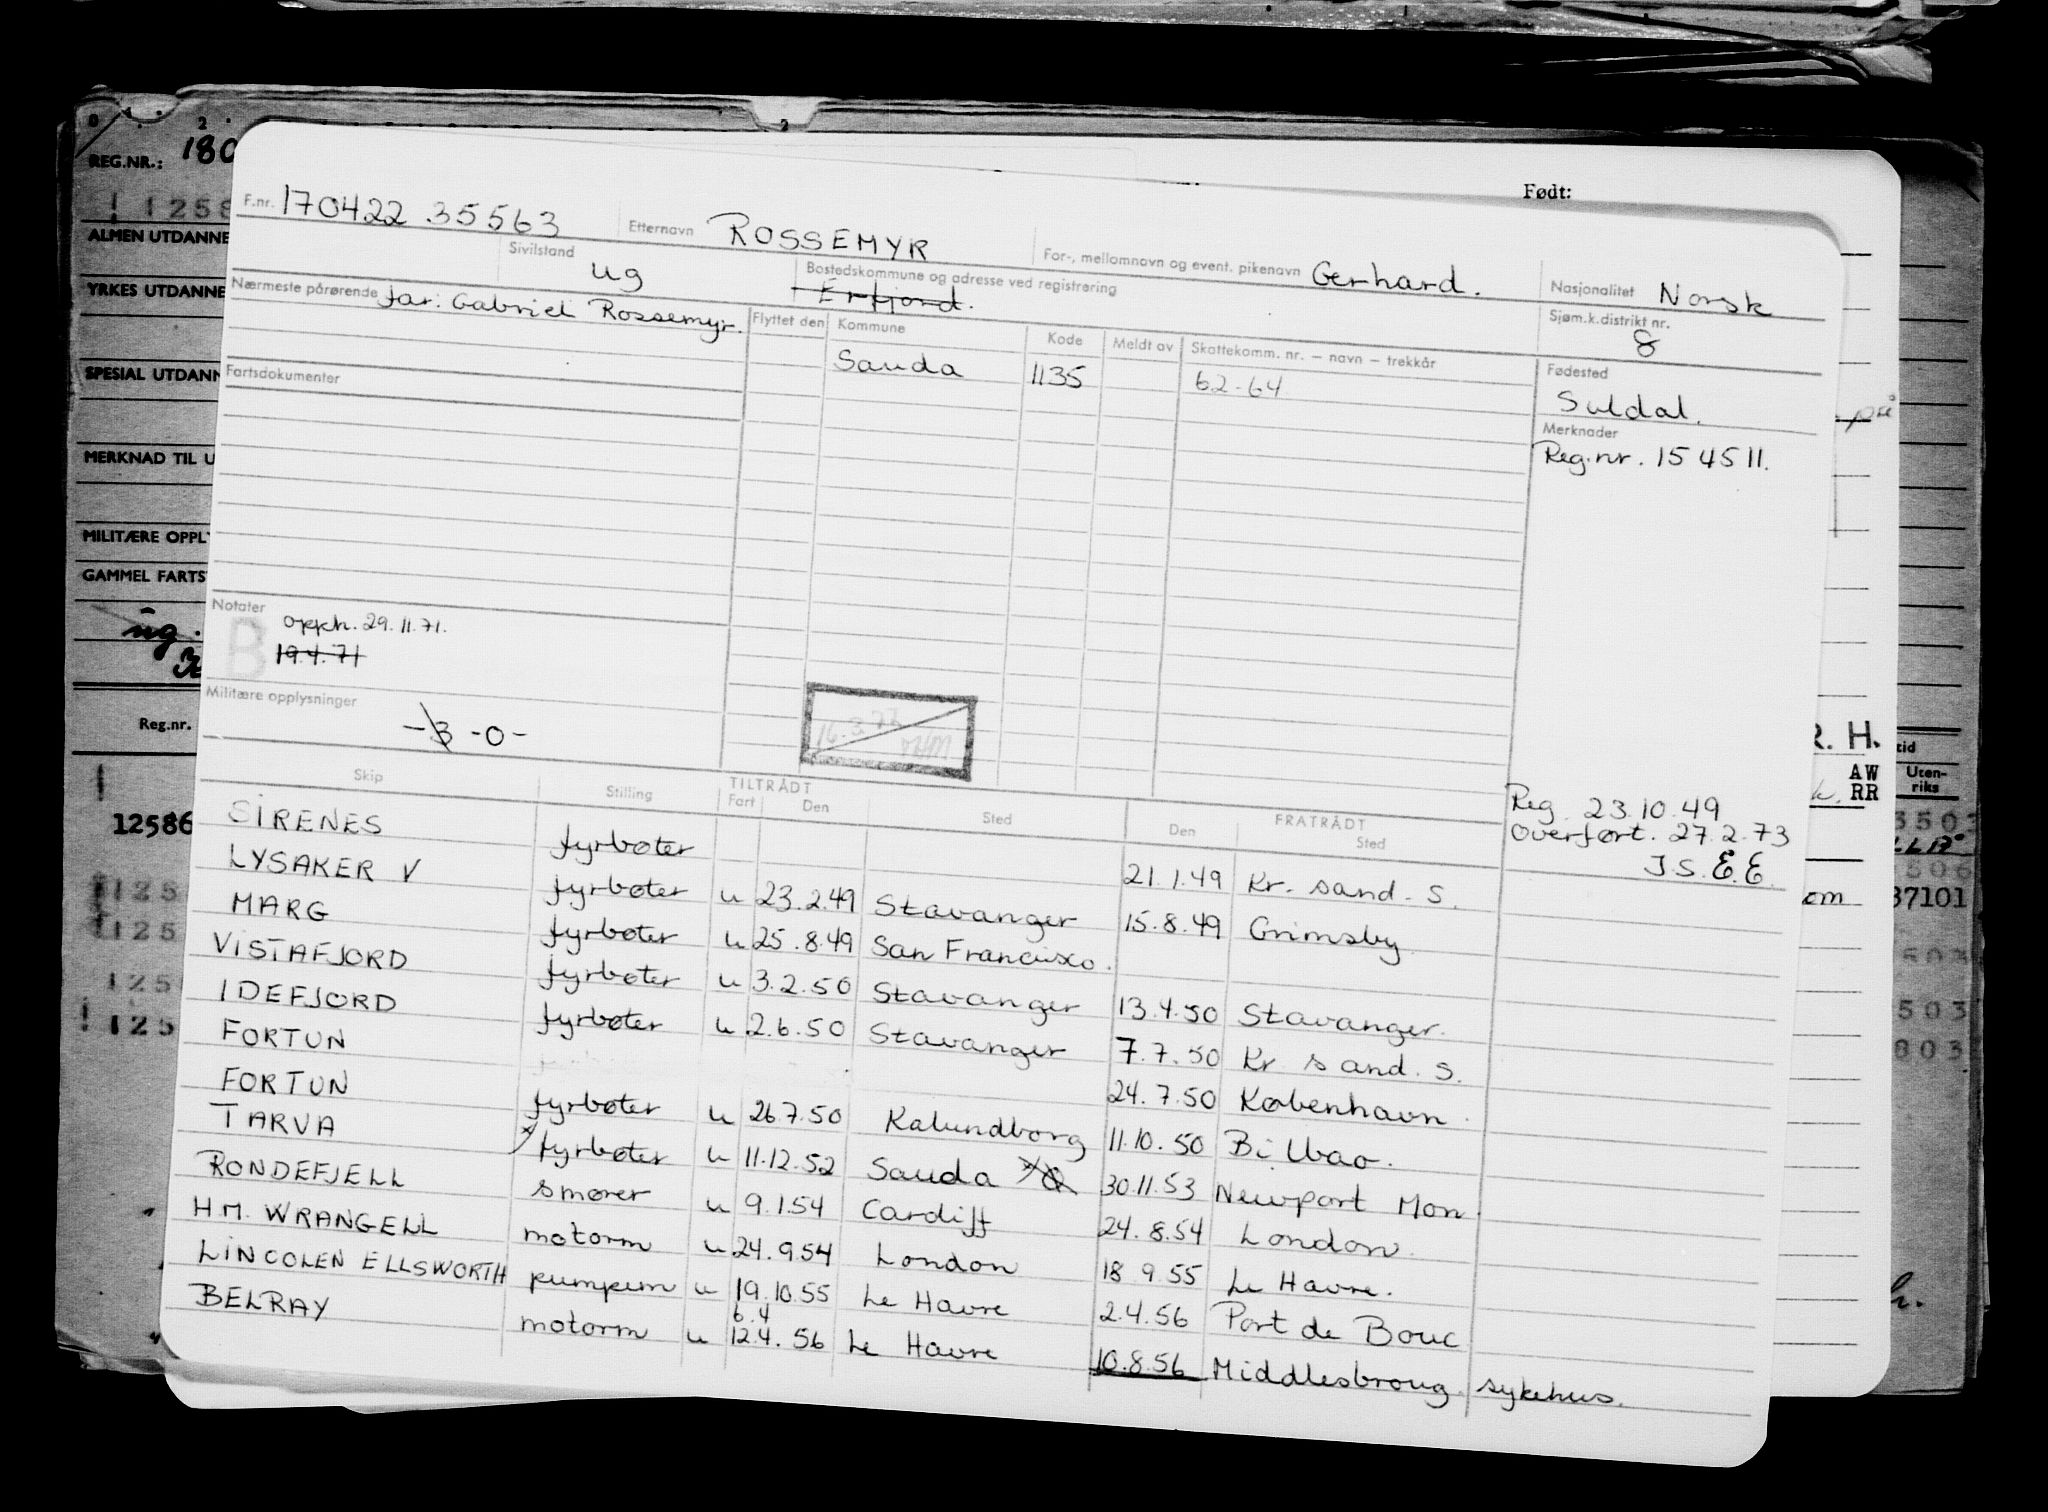 REG.NR.: 180
Født:
F.nr. 170422 35563 Etternavn ROSSEMYR For-, mellomnavn og event. pikenavn Gerhard. Nasjonalitet Norsk
ALMEN UTDANNE
Sivilstand ug Bostedskommune og adresse ved registrering Erfjord. Sjøm.k.distrikt nr. 8
YRKES UTDANNE
Nærmeste pårørende far: Gabriel Rossemyr. Flyttet den Kommune Kode Meldt av Skattekomm. nr. – navn – trekkår
Sauda 1135 62-64 Fødested
Suldal.
SPESIAL UTDANN
Fartsdokumenter
Merknader
Reg.nr. 154511.
MERKNAD TIL U
MILITÆRE OPPLY
GAMMEL FARTS
ug.
Notater
B opph. 29.11.71.
19.4.71
Militære opplysninger
-3 -0-
16.3.73
Reg.nr.
R. H.
AW
RR
Uten-
riks
12586
Reg. 23.10.49
Overført. 27.2.73
J.S. E.E.
37101
Skip Stilling TILTRÅDT Fart Den Sted FRATRÅDT Den Sted
SIRENES fyrbøter 21.1.49 Kr. sand. S.
LYSAKER V fyrbøter u 23.2.49 Stavanger 15.8.49 Grimsby
MARG fyrbøter u 25.8.49 San Francisco.
VISTAFJORD fyrbøter u 3.2.50 Stavanger 13.4.50 Stavanger.
IDEFJORD fyrbøter u 2.6.50 Stavanger 7.7.50 Kr sand. S.
FORTUN 24.7.50 København.
FORTUN fyrbøter u 26.7.50 Kalundborg 11.10.50 Bilbao.
TARVA fyrbøter u 11.12.52 Sauda 30.11.53 Newport Mon.
RONDEFJELL smører u 9.1.54 Cardiff 24.8.54 London.
H.M. WRANGELL motorm u 24.9.54 London 18.9.55 Le Havre.
LINCOLEN ELLSWORTH pumpem u 19.10.55 Le Havre 2.4.56 Port de Bouc
BELRAY motorm u 6.4 12.4.56 Le Havre 10.8.56 Middlesbroug. sykehus.